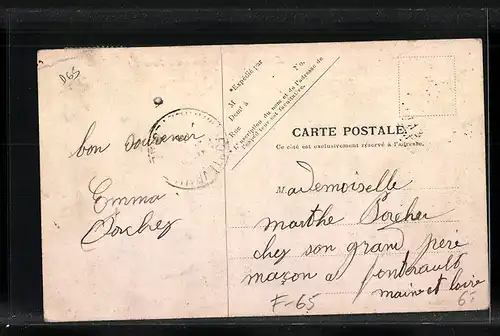 D65
bon souvenir
Emma
Porcher
*Expédié par
M
Dem<sup>t</sup> à
Rue N<sup>o</sup>.
*L'inscription du nom et de l'adresse de
l'expéditeur est facultative.
CARTE POSTALE
Ce côté est exclusivement réservé à l'adresse.
Mademoiselle
marthe Porcher
chez son grand père
maçon a fontevrault
maine et loire
F-65
6.-